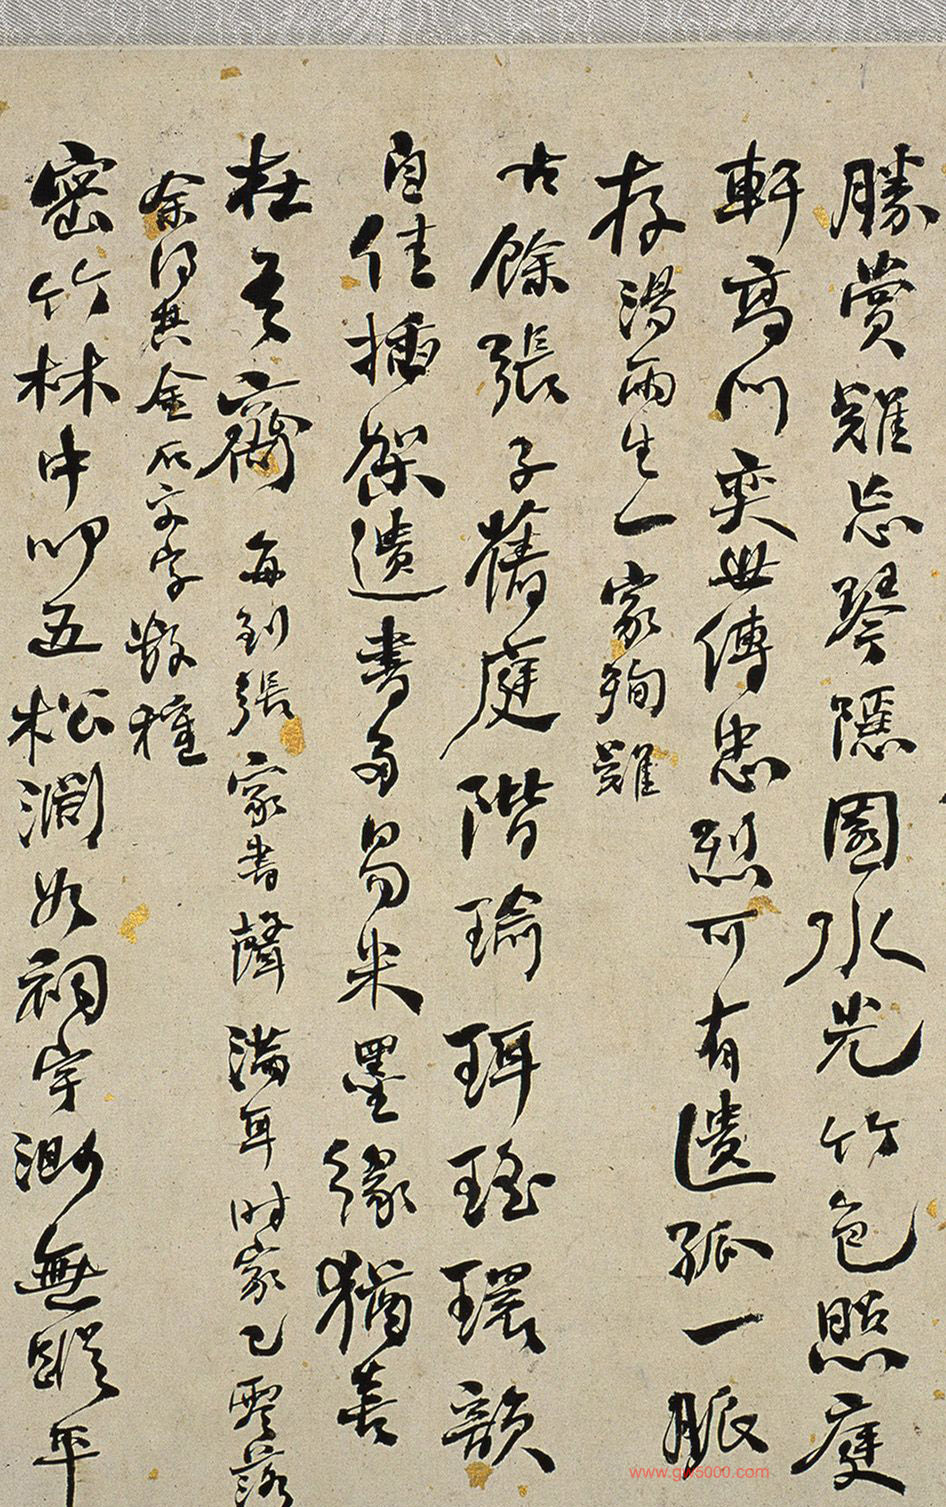 勝賞難忘琴隱園水光竹色照庭
軒高門奕世傳忠烈可有遺孤一脈
存湯雨生一家殉難
古餘張子舊庭階瑜珥瑤環韻
自佳插架遺書多易米墨緣猶喜
在吾齋每到張家書聲滿耳時家已零落
余得其金石文字數種
密竹林中叩五松澗如祠宇渺無蹤平
www.gw5000.com